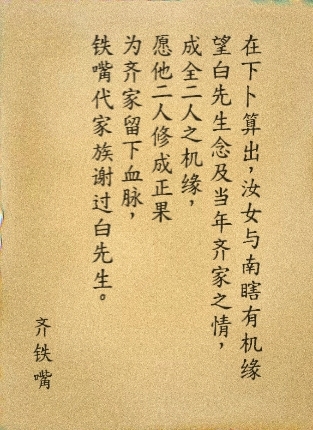 在下卜算出，汝女与南瞎有机缘
望白先生念及当年齐家之情，
成全二人之机缘，
愿他二人修成正果
为齐家留下血脉，
铁嘴代家族谢过白先生。
齐铁嘴